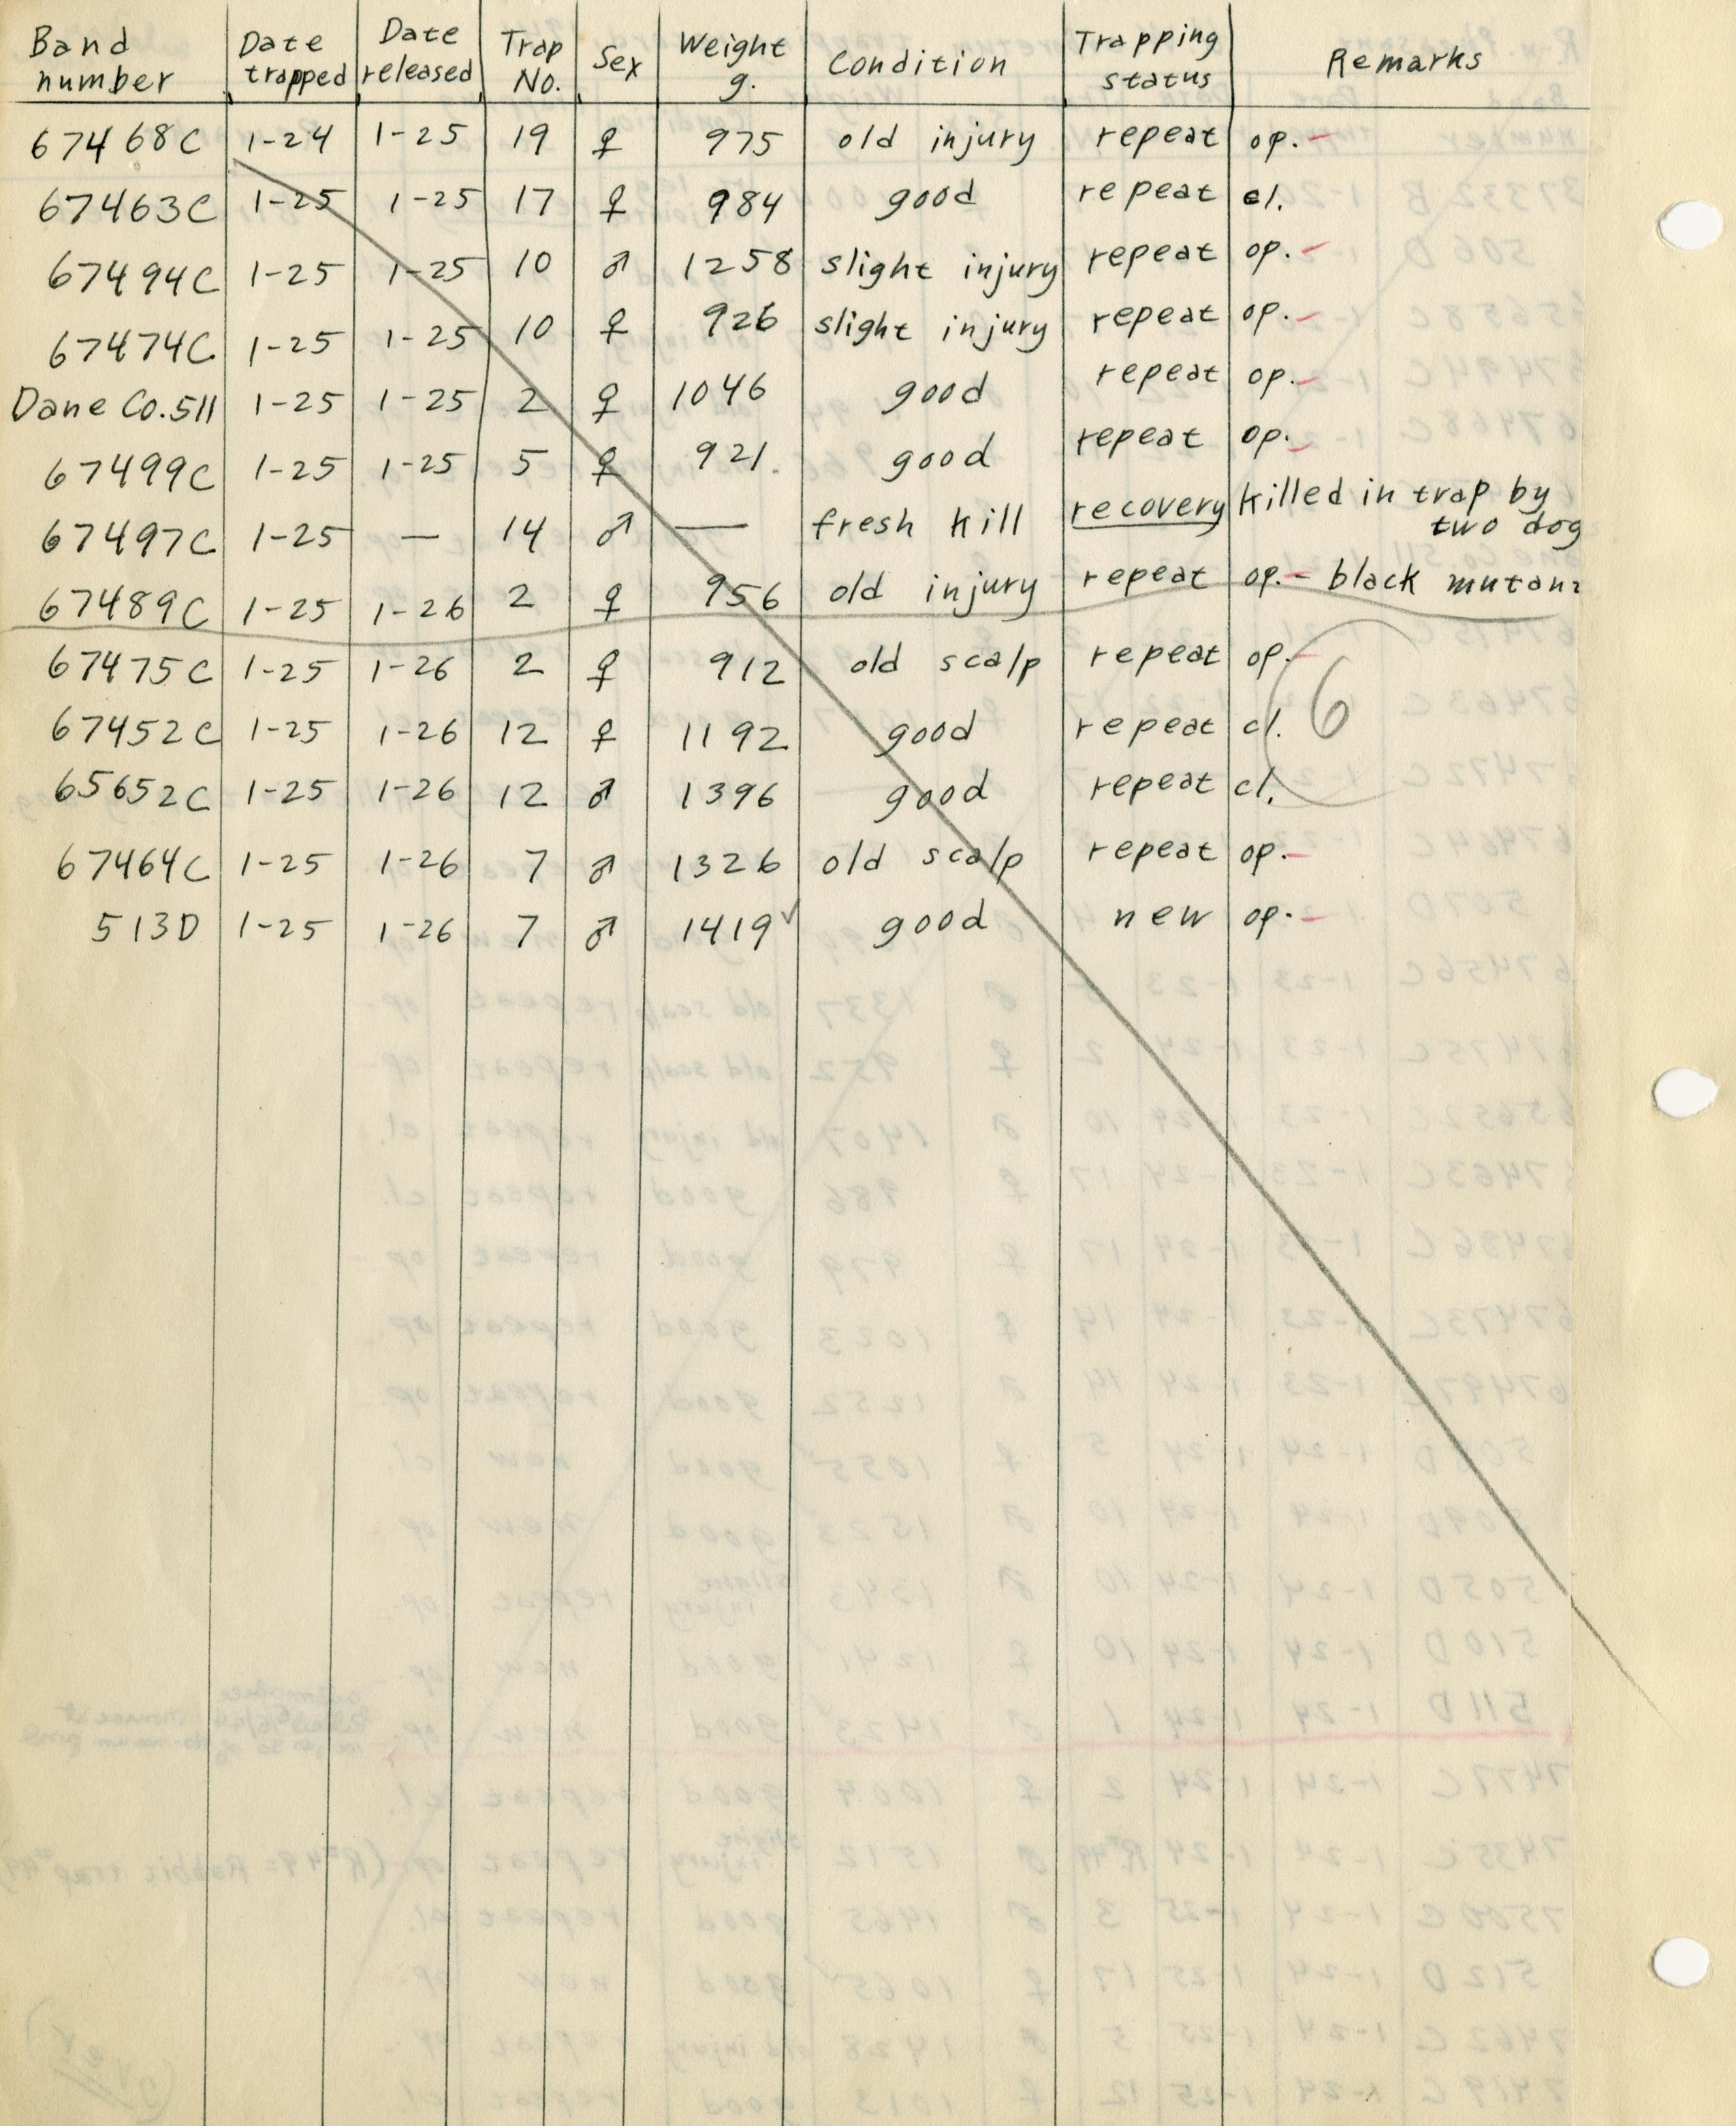 Band number | Date trapped | Date released | Trap No. | Sex | Weight g. | Condition | Trapping status | Remarks
67468C | 1-24 | 1-25 | 19 | ♀ | 975 | old injury | repeat | op. -
67463C | 1-25 | 1-25 | 17 | ♀ | 984 | good | repeat | cl.
67494C | 1-25 | 1-25 | 10 | ♂ | 1258 | slight injury | repeat | op. -
67474C | 1-25 | 1-25 | 10 | ♀ | 926 | slight injury | repeat | op. -
Dane Co. 511 | 1-25 | 1-25 | 2 | ♀ | 1046 | good | repeat | op. -
67499C | 1-25 | 1-25 | 5 | ♀ | 921. | good | repeat | op. -
67497C | 1-25 | — | 14 | ♂ | — | fresh kill | recovery | killed in trap by two dog
67489C | 1-25 | 1-26 | 2 | ♀ | 956 | old injury | repeat | op. - black mutant
67475C | 1-25 | 1-26 | 2 | ♀ | 912 | old scalp | repeat | op. -
6
67452C | 1-25 | 1-26 | 12 | ♀ | 1192 | good | repeat | cl.
65652C | 1-25 | 1-26 | 12 | ♂ | 1396 | good | repeat | cl.
67464C | 1-25 | 1-26 | 7 | ♂ | 1326 | old scalp | repeat | op. -
513D | 1-25 | 1-26 | 7 | ♂ | 1419 ✓ | good | new | op. -